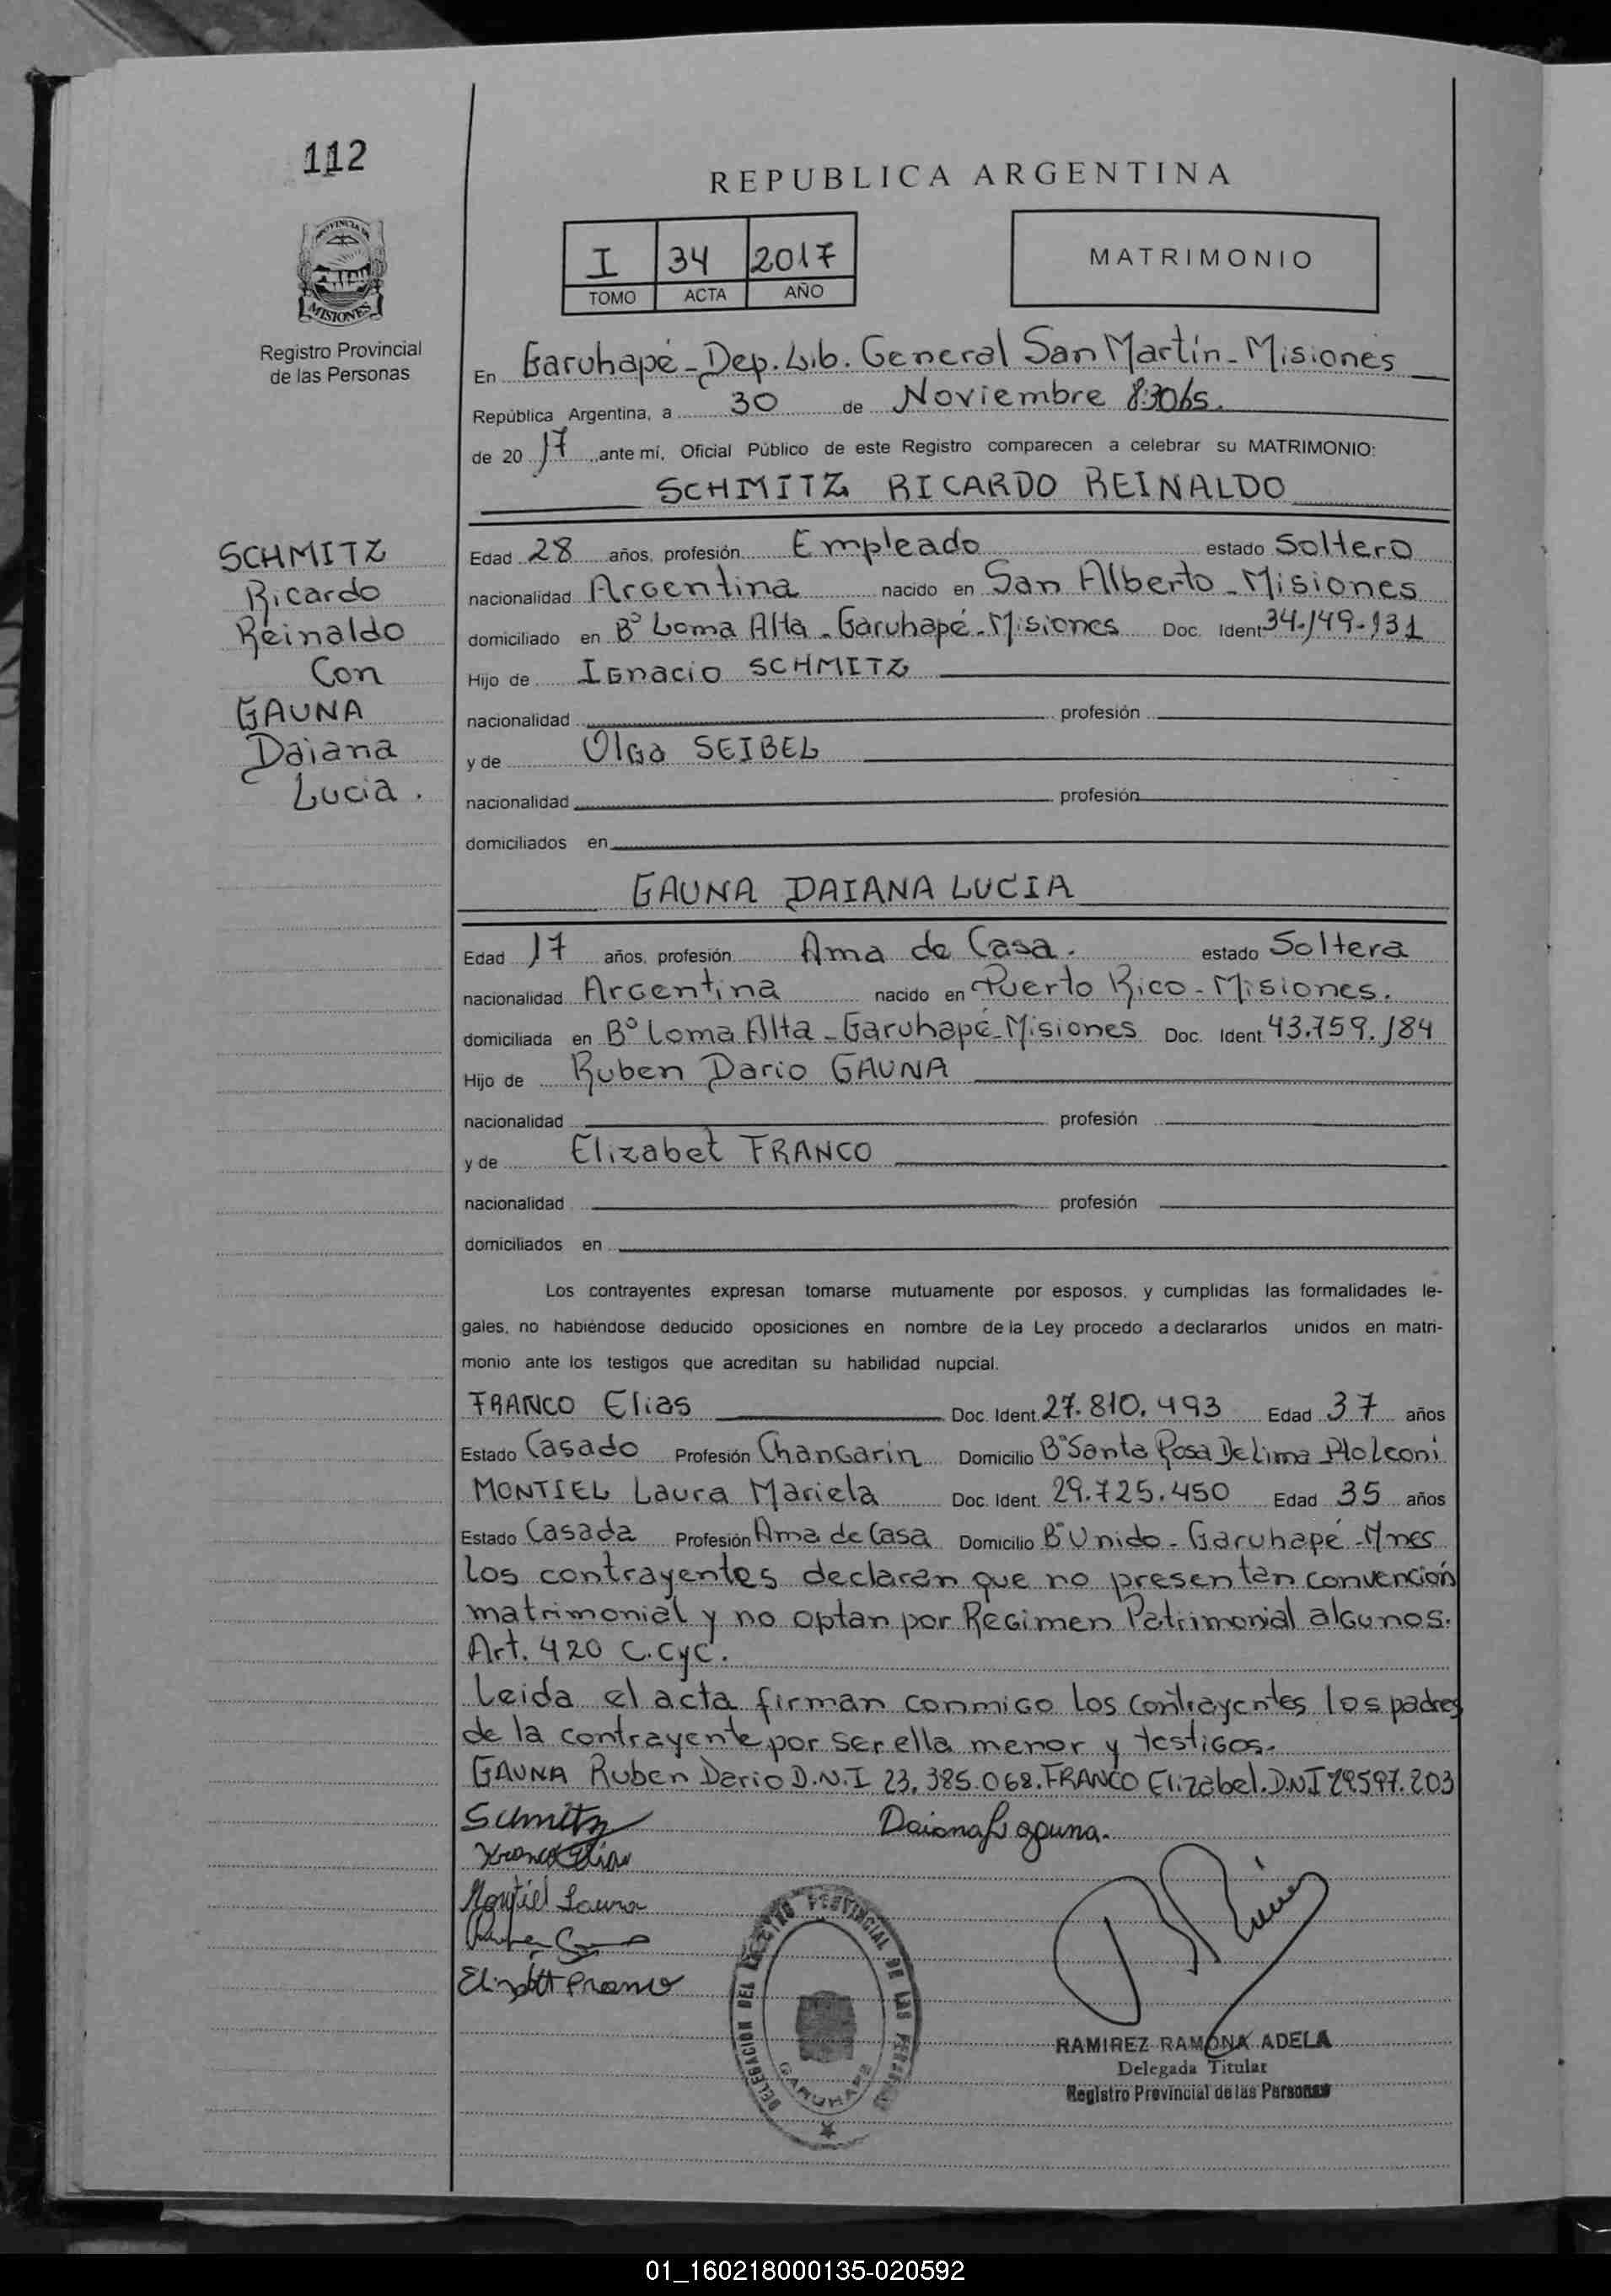 112
REPUBLICA ARGENTINA
I 34 2017
TOMO ACTA AÑO
MATRIMONIO
PROVINCIA DE
MISIONES
Registro Provincial
de las Personas
En Garuhapé - Dep. Lib. General San Martín - Misiones
República Argentina, a 30 de Noviembre 8:30hs.
de 2017, ante mí, Oficial Público de este Registro comparecen a celebrar su MATRIMONIO:
SCHMITZ RICARDO REINALDO
SCHMITZ
Ricardo
Reinaldo
Con
GAUNA
Daiana
Lucia.
Edad 28 años, profesión Empleado estado Soltero
nacionalidad Argentina nacido en San Alberto - Misiones
domiciliado en B° Loma Alta - Garuhapé - Misiones Doc. Ident. 34.149.131
Hijo de Ignacio SCHMITZ
nacionalidad profesión
y de Olga SEIBEL
nacionalidad profesión
domiciliados en
GAUNA DAIANA LUCIA
Edad 17 años, profesión Ama de Casa. estado Soltera
nacionalidad Argentina nacido en Puerto Rico - Misiones.
domiciliada en B° Loma Alta - Garuhapé - Misiones Doc. Ident. 43.759.184
Hijo de Ruben Dario GAUNA
nacionalidad profesión
y de Elizabet FRANCO
nacionalidad profesión
domiciliados en
Los contrayentes expresan tomarse mutuamente por esposos, y cumplidas las formalidades le-
gales, no habiéndose deducido oposiciones en nombre de la Ley procedo a declararlos unidos en matri-
monio ante los testigos que acreditan su habilidad nupcial.
FRANCO Elias Doc. Ident. 27.810.493 Edad 37 años
Estado Casado Profesión Changarin Domicilio B° Santa Rosa De Lima
MONTIEL Laura Mariela Doc. Ident. 29.725.450 Edad 35 años
Estado Casada Profesión Ama de Casa Domicilio B° Unido - Garuhapé - Mnes
los contrayentes declaran que no presentan convención
matrimonial y no optan por Regimen Patrimonial algunos.
Art. 420 C.CyC.
Leida el acta firman conmigo los contrayentes los padres
de la contrayente por ser ella menor y testigos.
GAUNA Ruben Dario D.N.I 23.385.068. FRANCO Elizabel. D.N.I 29.597.203
Schmitz
Franco Elias
Montiel Laura
DELEGACION DEL REGISTRO PROVINCIAL DE LAS PERSONAS
GARUHAPE
RAMIREZ RAMONA ADELA
Delegada Titular
Registro Provincial de las Personas
01_160218000135-020592